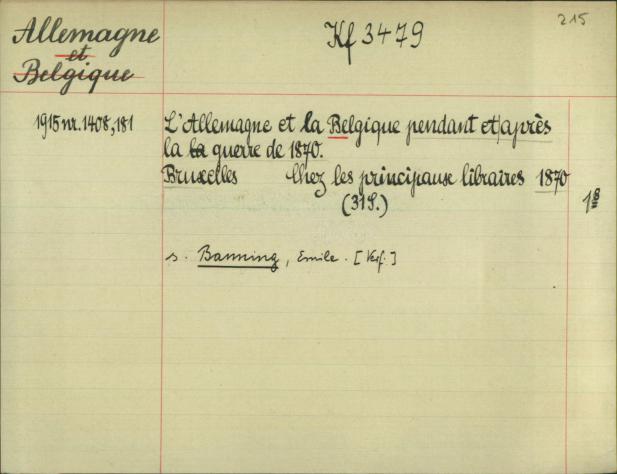 Allemagne
et
Belgique
Kf 3479
215
1915 nr. 1408, 181
L'Allemagne et la Belgique pendant et après
la la guerre de 1870.
Bruxelles Chez les principaux libraires 1870
(31 S.)
1 8
s. Banning, Emile. [Verf.]